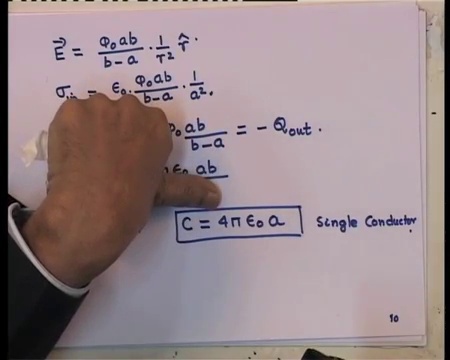 E⃗ = φ₀ab / b-a · 1/r² r̂ .
σin = ε₀ . φ₀ab / b-a · 1/a² .
φ₀ ab / b-a = - Qout .
ε₀ ab
C = 4π ε₀ a Single Conductor
10